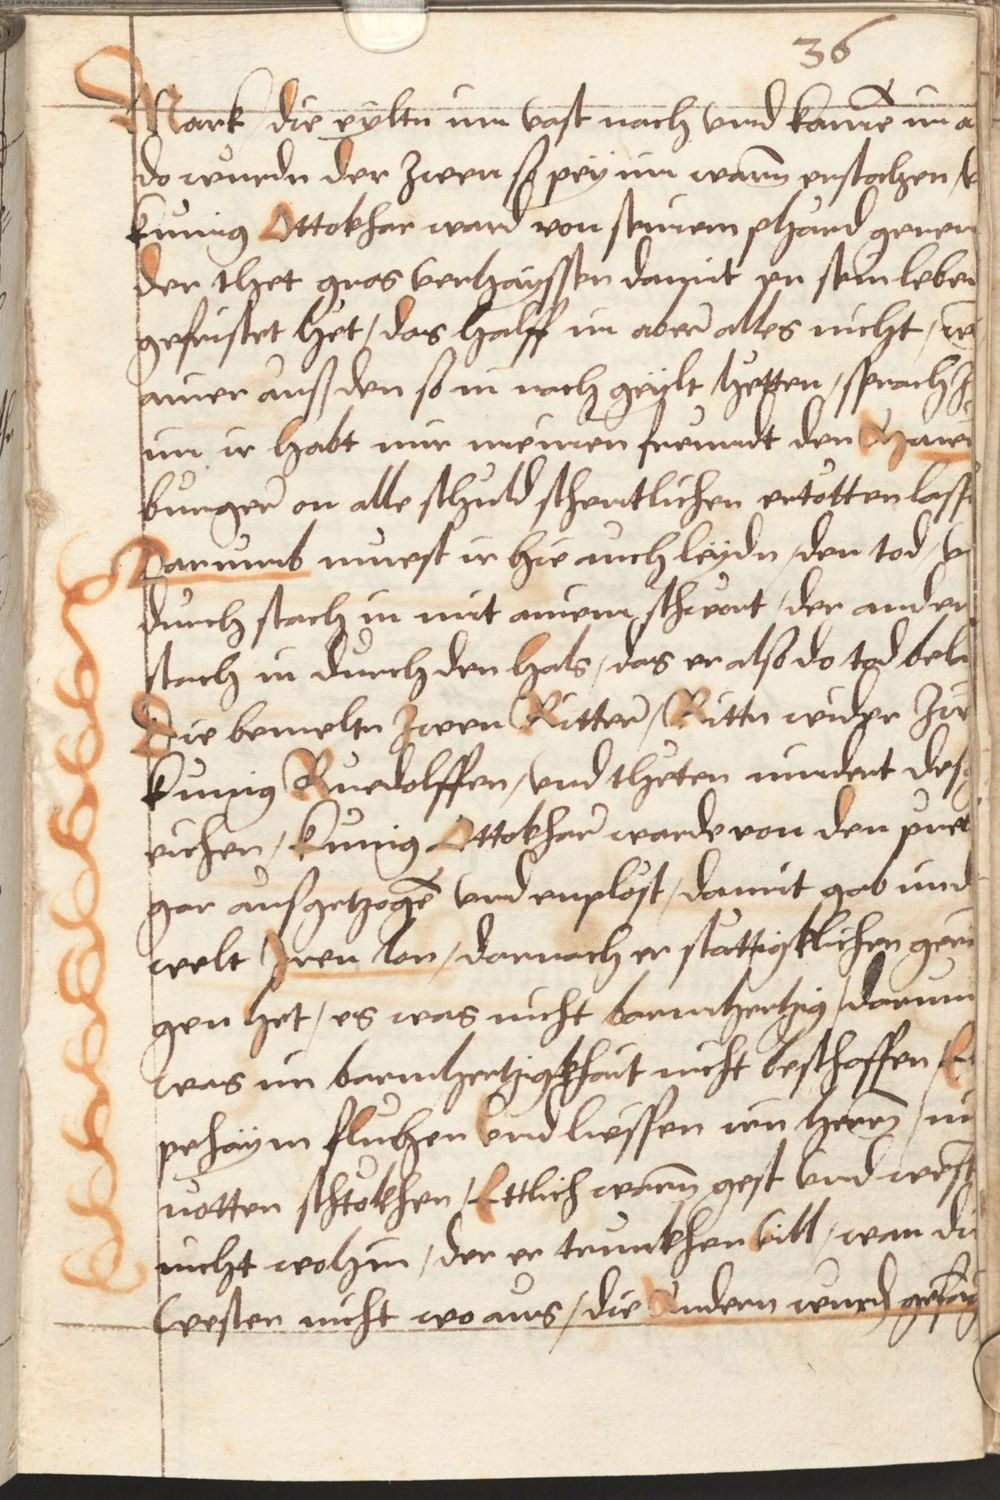 36
Mark / die eyltn im vast nach vnd kamē im a
do wurdn der zwen so pey im warn̄ erstochen /
kunig Ottokhar ward von seinem phard geren
der thet gros verhayssen damit er sein leben
gefristet het / das halff in aber alles nicht /
ainer auß den so in nach geylt hetten / sprach
im ir habt mir meinen freundt den
burger on alle schuld schentlichen ertötten lass
Darumb muest ir hie auch leydn / den tod / v
durch stach in mit ainem schwort / der ander
stach in durch den hals / das er also do tod beli
Die bemeltn zwen Ritter / Rittn wider zw
kunig Ruedolffen / vnd theten mindert des
eichen / Kunig Ottokhar warde von den
gar aufgetzogē vnd enplöst / damit gab im d
welt Iren lon / darnach er stättigklichen geru
gen het / es was nicht barmhertzig / darum
was im barmhertzigkhait nicht beschaffen /
pehaym fluhen vnd liessen irn herrn̄ / in
notten schtokhen / Ettlich warn̄ gest vnd west
nicht wohin / der er trunkhen vill / wan die
Westen nicht wo aus / die Andern wurdn gefang